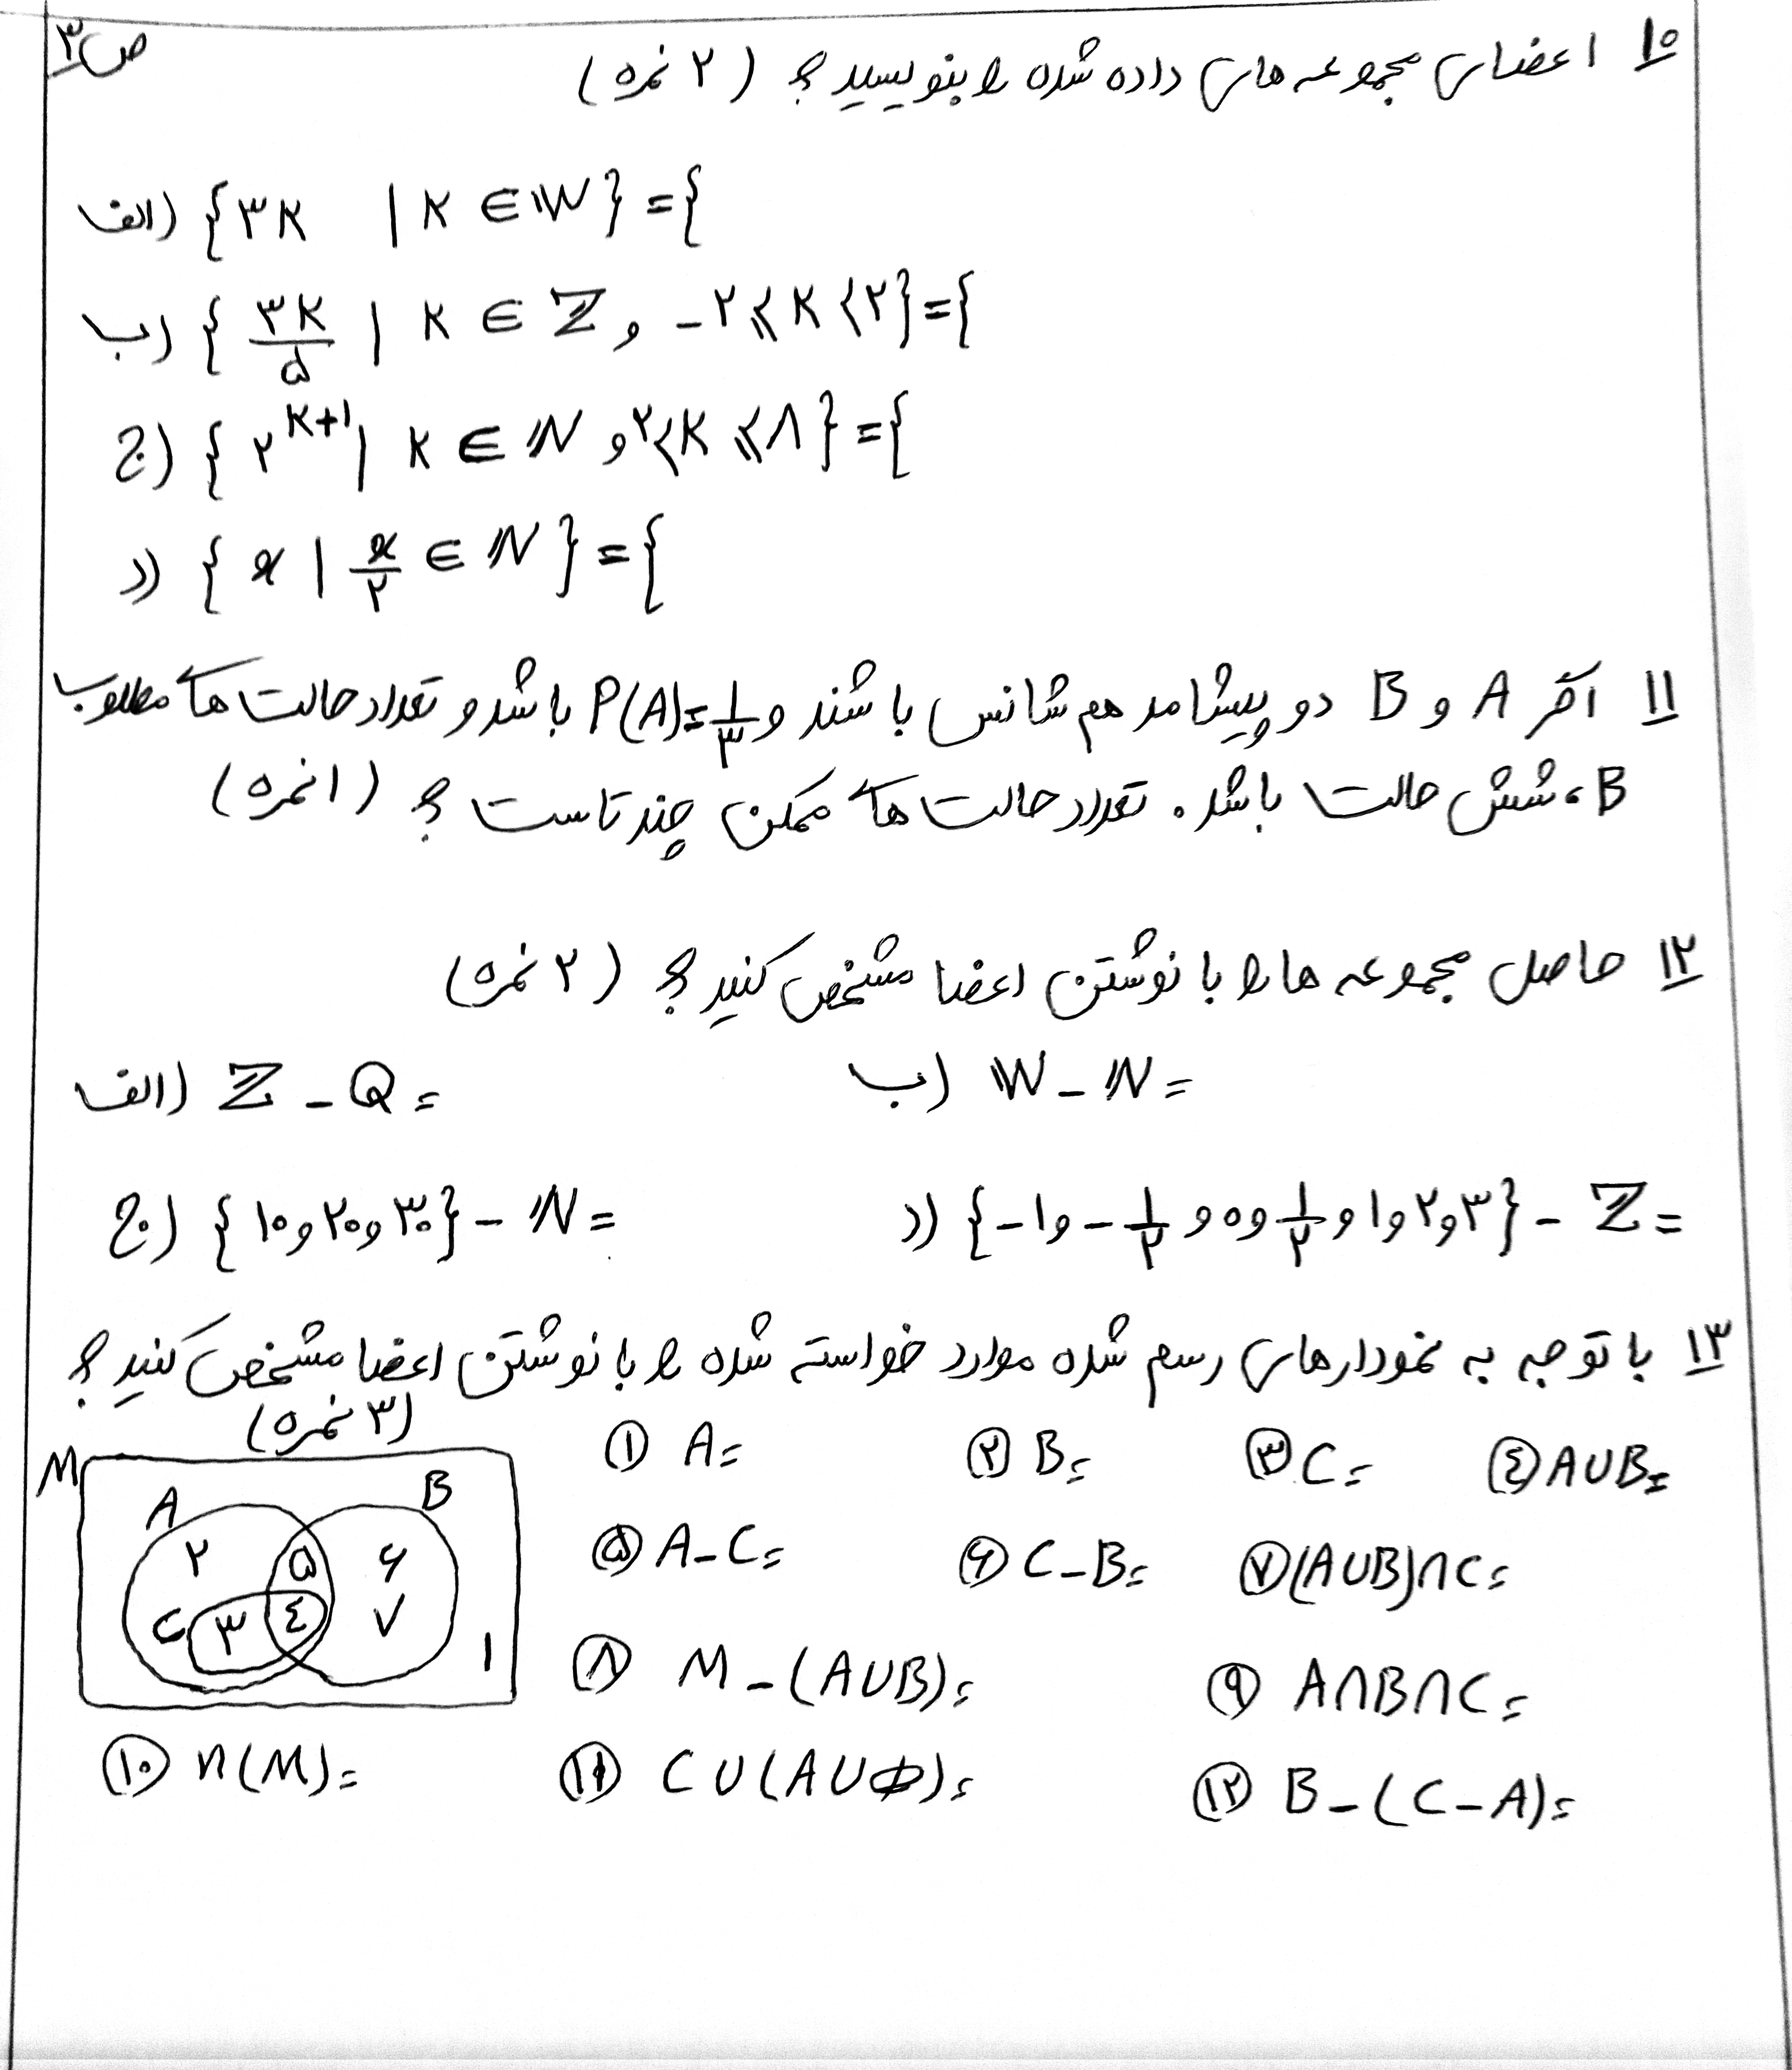 ص۳
۱۰ اعضای مجموعه های داده شده را بنویسید؟ (۲ نمره)
الف) {۳K | K ∈ W} = {
ب) {۳K/۵ | K ∈ Z و -۲ ⩽ K < ۲} = {
ج) {۲^(K+1) | K ∈ N و ۲ < K ⩽ ۸} = {
د) {x | x/۲ ∈ N} = {
۱۱ اگر A و B دو پیشامد هم شانس باشند و P(A)=۱/۳ باشد و تعداد حالت های مطلوب
B، شش حالت باشد. تعداد حالت های ممکن چند تاست؟ (۱ نمره)
۱۲ حاصل مجموعه ها را با نوشتن اعضا مشخص کنید؟ (۲ نمره)
الف) Z - Q = ب) W - N =
ج) {۱۰ و ۲۰ و ۳۰} - N = د) {-۱ و -۱/۲ و ۰ و ۱/۲ و ۱ و ۲ و ۳} - Z =
۱۳ با توجه به نمودارهای رسم شده موارد خواسته شده را با نوشتن اعضا مشخص کنید؟
(۳ نمره)
① A= ② B= ③ C= ④ A∪B=
⑤ A-C= ⑥ C-B= ⑦ (A∪B)∩C=
⑧ M-(A∪B)= ⑨ A∩B∩C=
⑩ n(M)= ⑪ C∪(A∪Φ)= ⑫ B-(C-A)=
M
A B
۲ ۵ ۶
C ۳ ۴ ۷
۱